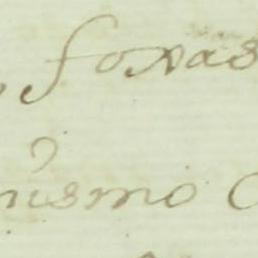 foxas
mismo